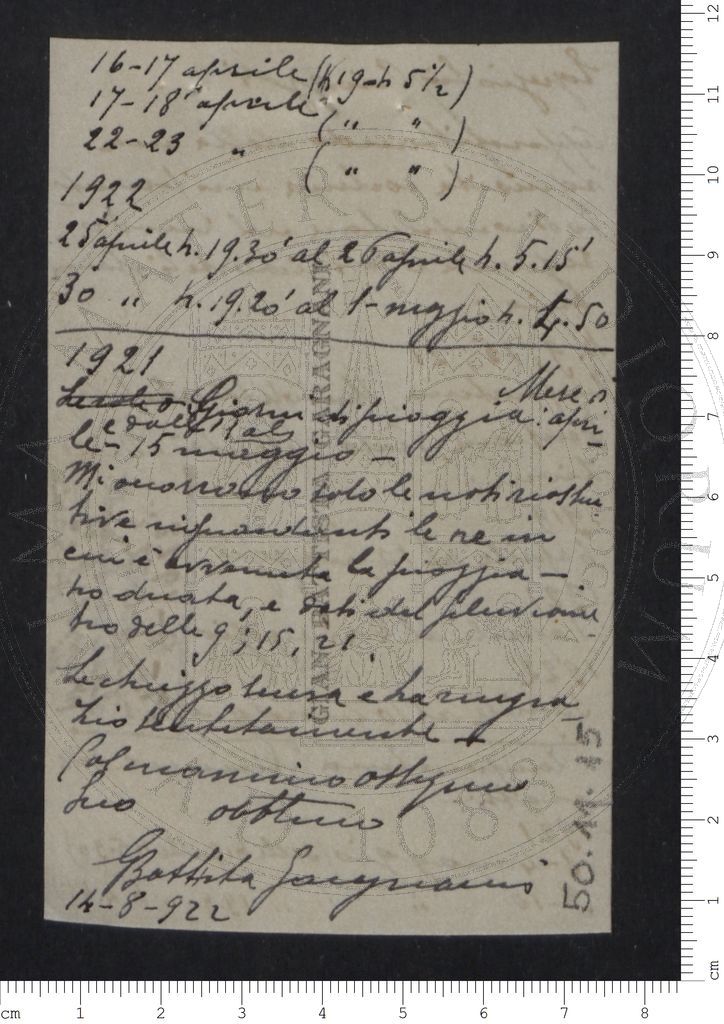 16-17 aprile (h 19-h 5 1/2)
17-18 aprile ( " " )
22-23 " ( " " )
1922
25 aprile h. 19.30' al 26 aprile h. 5.15'
30 " h. 19.20' al 1- maggio h. 4.50
1921
Mese
Giorni di pioggia: apri-
e dall'1 al
le - 15 maggio -
Mi occorrono solo le notizie
tive riguardanti le ore in
cui è avvenuta la pioggia -
durata, e dati del pluviome
tro delle 9; 15, 21.
Le chieggo scusa e La ringra
zio sentitamente -
Col massimo ossequio
Suo obbl.mo
Battista Gavagnani
14-8-922
50.11.15
GIAN BATTISTA GARAGNANI
ALMA MATER STUDIORUM
A.D. 1088
cm 1 2 3 4 5 6 7 8
cm 1 2 3 4 5 6 7 8 9 10 11 12